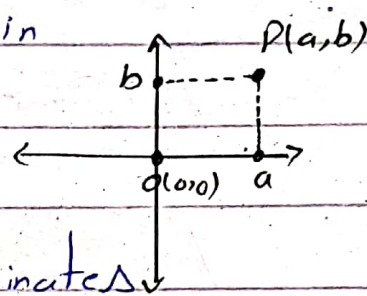 in
P(a,b)
b
O(0,0) a
inates